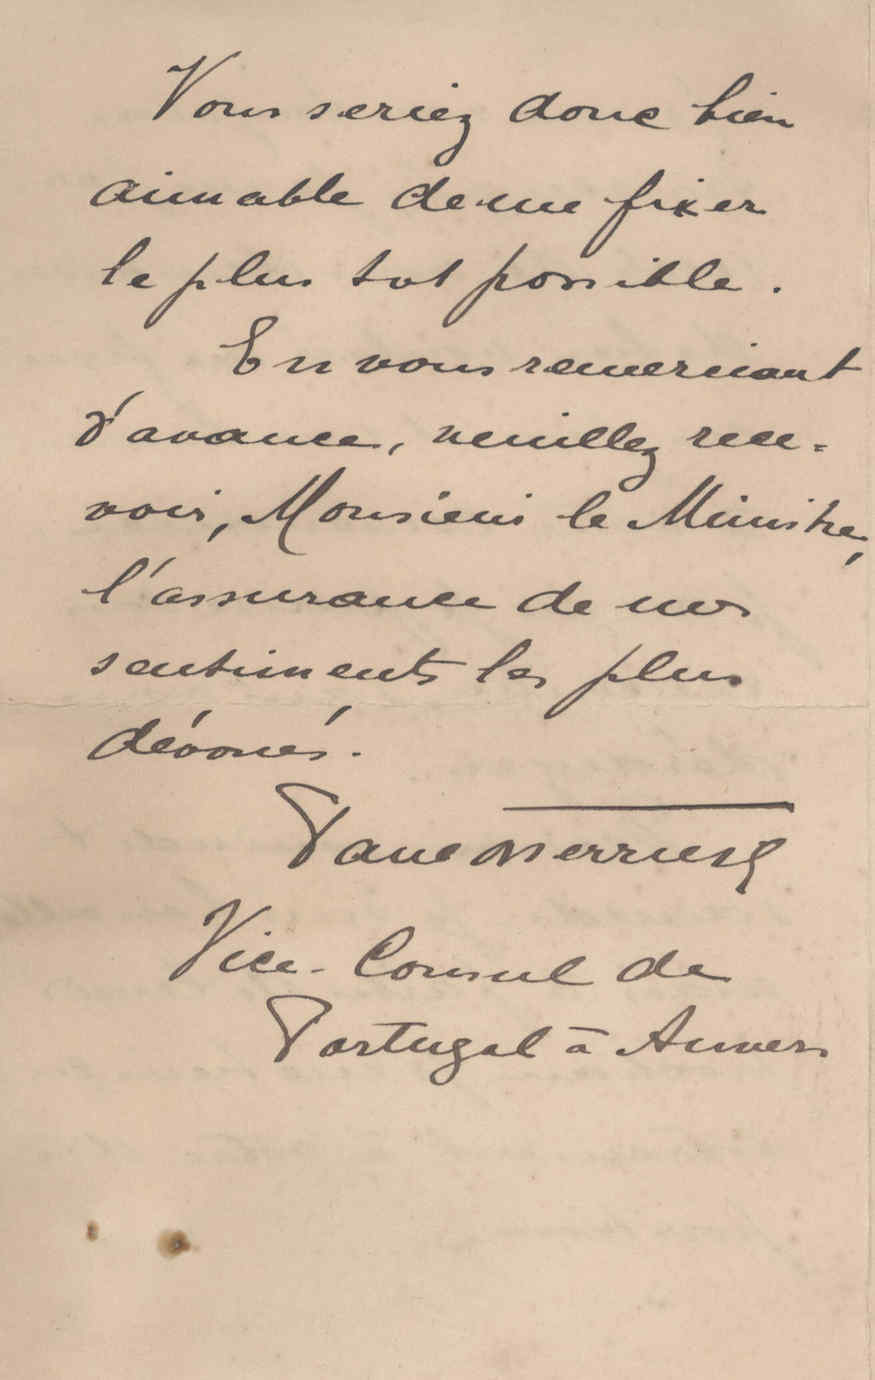 Vous seriez donc bien
aimable de me fixer
le plus tot possible.
En vous remerciant
d'avance, veuillez rece-
voir, Monsieur le Ministre,
l'assurance de mes
sentiments les plus
dévoués.
Vice-Consul de
Portugal à Anvers